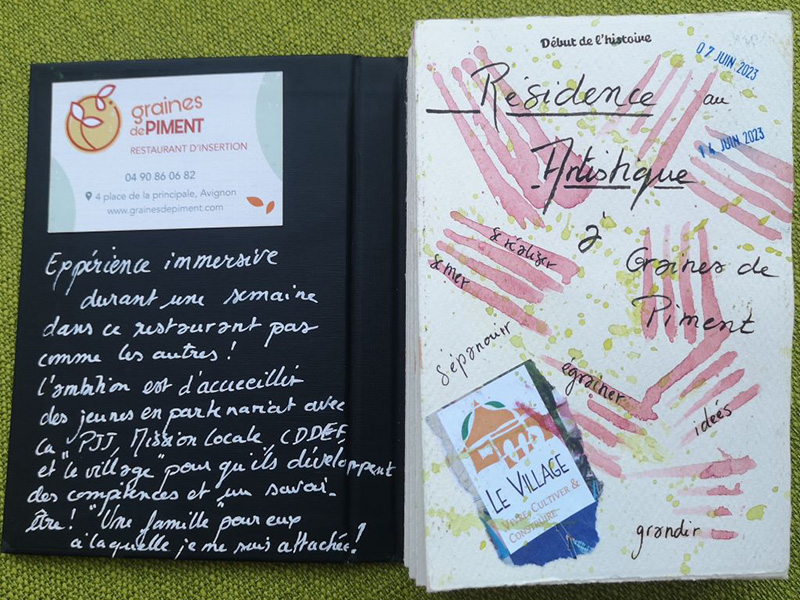 graines
de PIMENT
RESTAURANT D'INSERTION
04 90 86 06 82
4 place de la principale, Avignon
www.grainesdepiment.com
Expérience immersive
durant une semaine
dans ce restaurant pas
comme les autres !
L'ambition est d'accueillir
des jeunes en partenariat avec
la "PJJ, Mission locale, CDDEF,
et le village" pour qu'ils développent
des compétences et un savoir-
être ! "Une famille" pour eux
à laquelle je me suis attachée !
Début de l'histoire
07 JUIN 2023
Résidence au
14 JUIN 2023
Artistique
à
Graines de
Piment
se réaliser
semer
s'épanouir
égrainer
idées
LE VILLAGE
VIVRE CULTIVER &
CONSTRUIRE
grandir